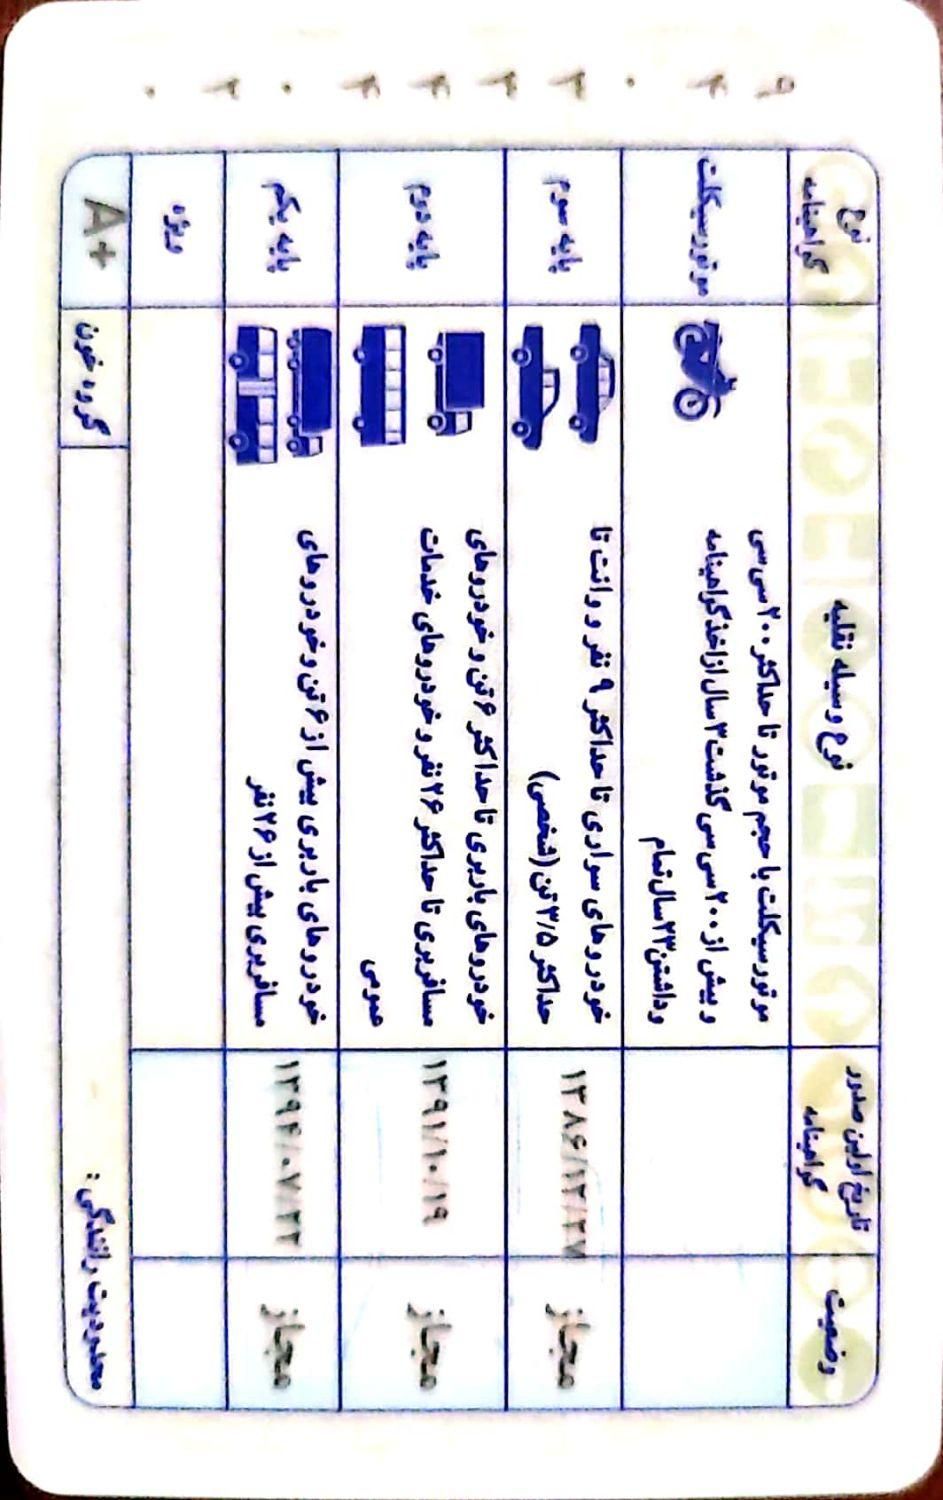 نوع گواهینامه
نوع وسیله نقلیه
تاریخ اولین صدور گواهینامه
وضعیت
موتورسیکلت
موتورسیکلت با حجم موتور تا حداکثر ۲۰۰ سی سی
و بیش از ۲۰۰ سی سی گذشت ۳ سال از اخذ گواهینامه
و داشتن ۲۳ سال تمام
پایه سوم
خودروهای سواری تا حداکثر ۹ نفر و وانت تا
حداکثر ۳/۵ تن (شخصی)
۱۳۸۶/۱۲/۲۷
مجاز
پایه دوم
خودروهای باربری تا حداکثر ۶ تن و خودروهای
مسافربری تا حداکثر ۲۶ نفر و خودروهای خدمات
عمومی
۱۳۹۱/۱۰/۱۹
مجاز
پایه یکم
خودروهای باربری بیش از ۶ تن و خودروهای
مسافربری بیش از ۲۶ نفر
۱۳۹۴/۰۷/۲۲
مجاز
ویژه
A+
گروه خون
محدودیت رانندگی :